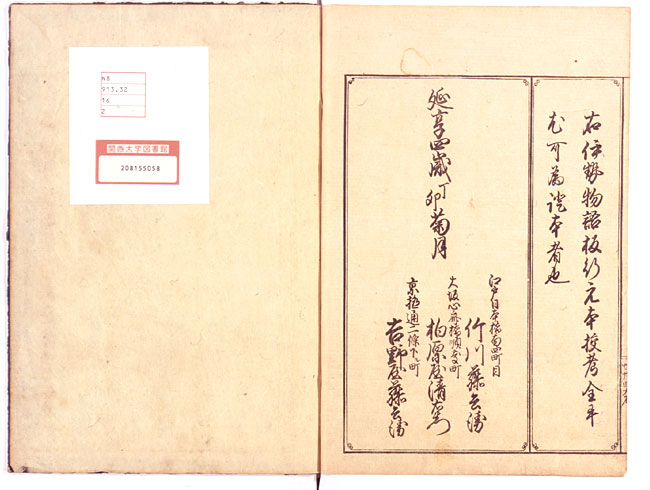 右伊勢物語板行元本挍考全部
尤可為證本者也
延享四歳丁卯菊月
江戸日本橋南四町目
竹川藤兵衛
大坂心斎橋順慶町
柏原屋清右衛門
京極通二條下ル町
吉野屋藤兵衛
N8
913.32
16
2
関西大学図書館
208155058